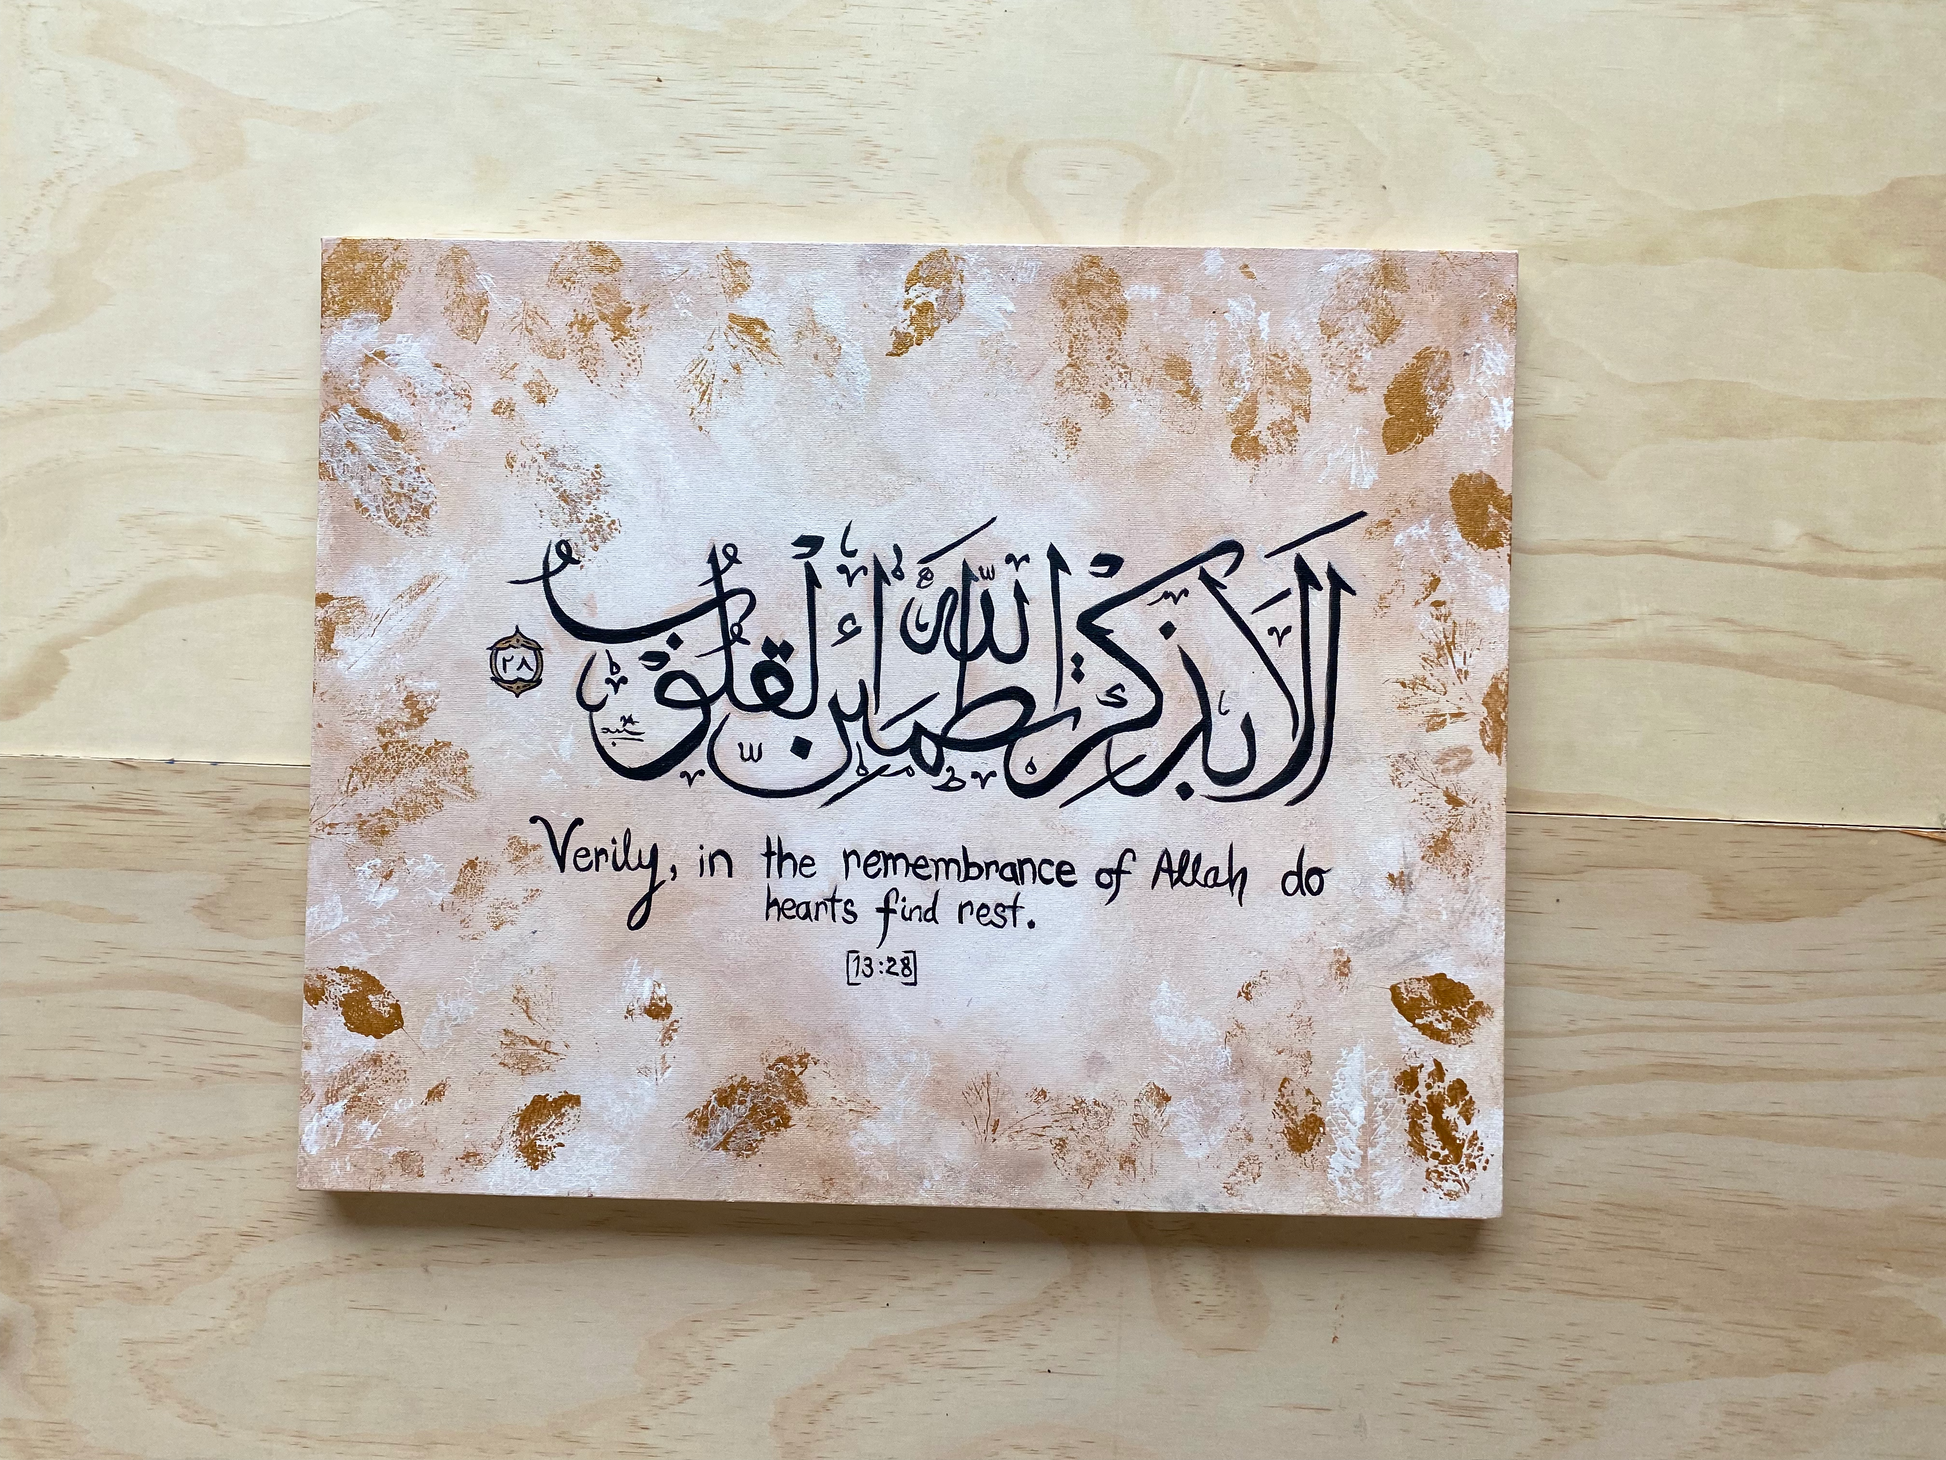 ألا بذكر الله تطمئن القلوب
٢٨
Verily, in the remembrance of Allah do
hearts find rest.
[13:28]